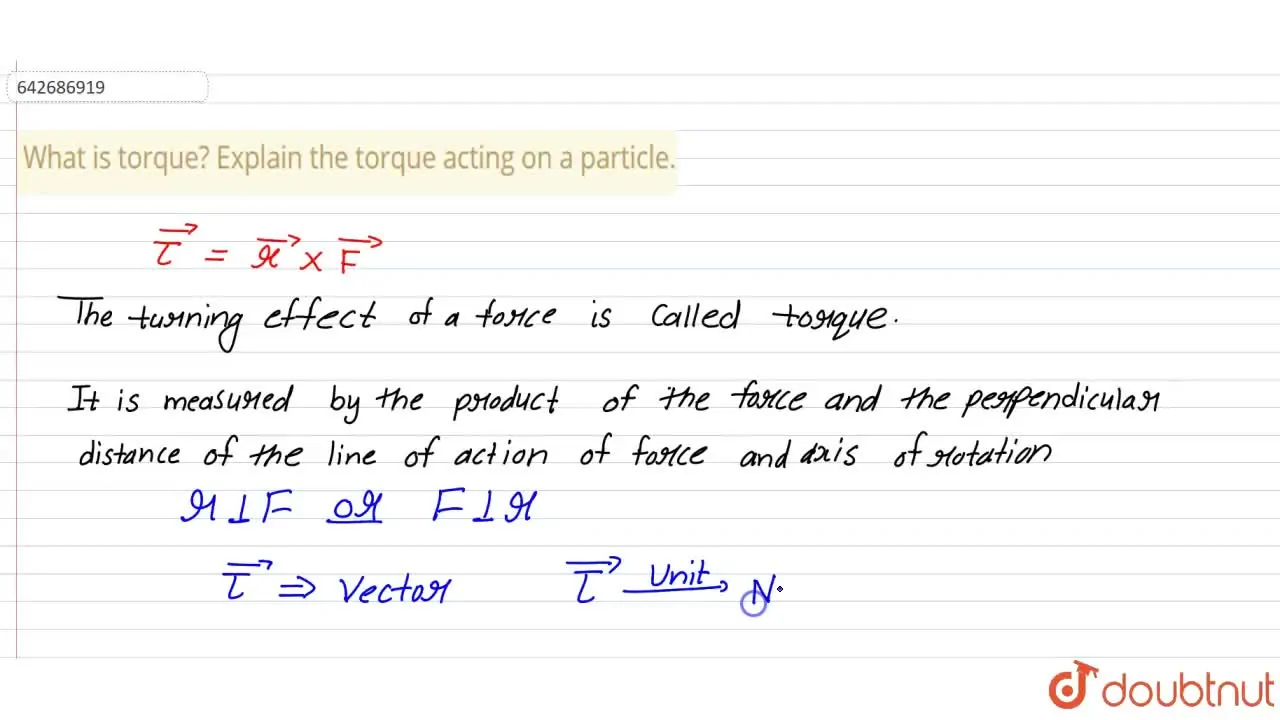 642686919
What is torque? Explain the torque acting on a particle.
τ⃗ = r⃗ × F⃗
The turning effect of a force is called torque.
It is measured by the product of the force and the perpendicular
distance of the line of action of force and axis of rotation
r⊥F or F⊥r
τ⃗ ⇒ Vector τ⃗ Unit→ N·
doubtnut